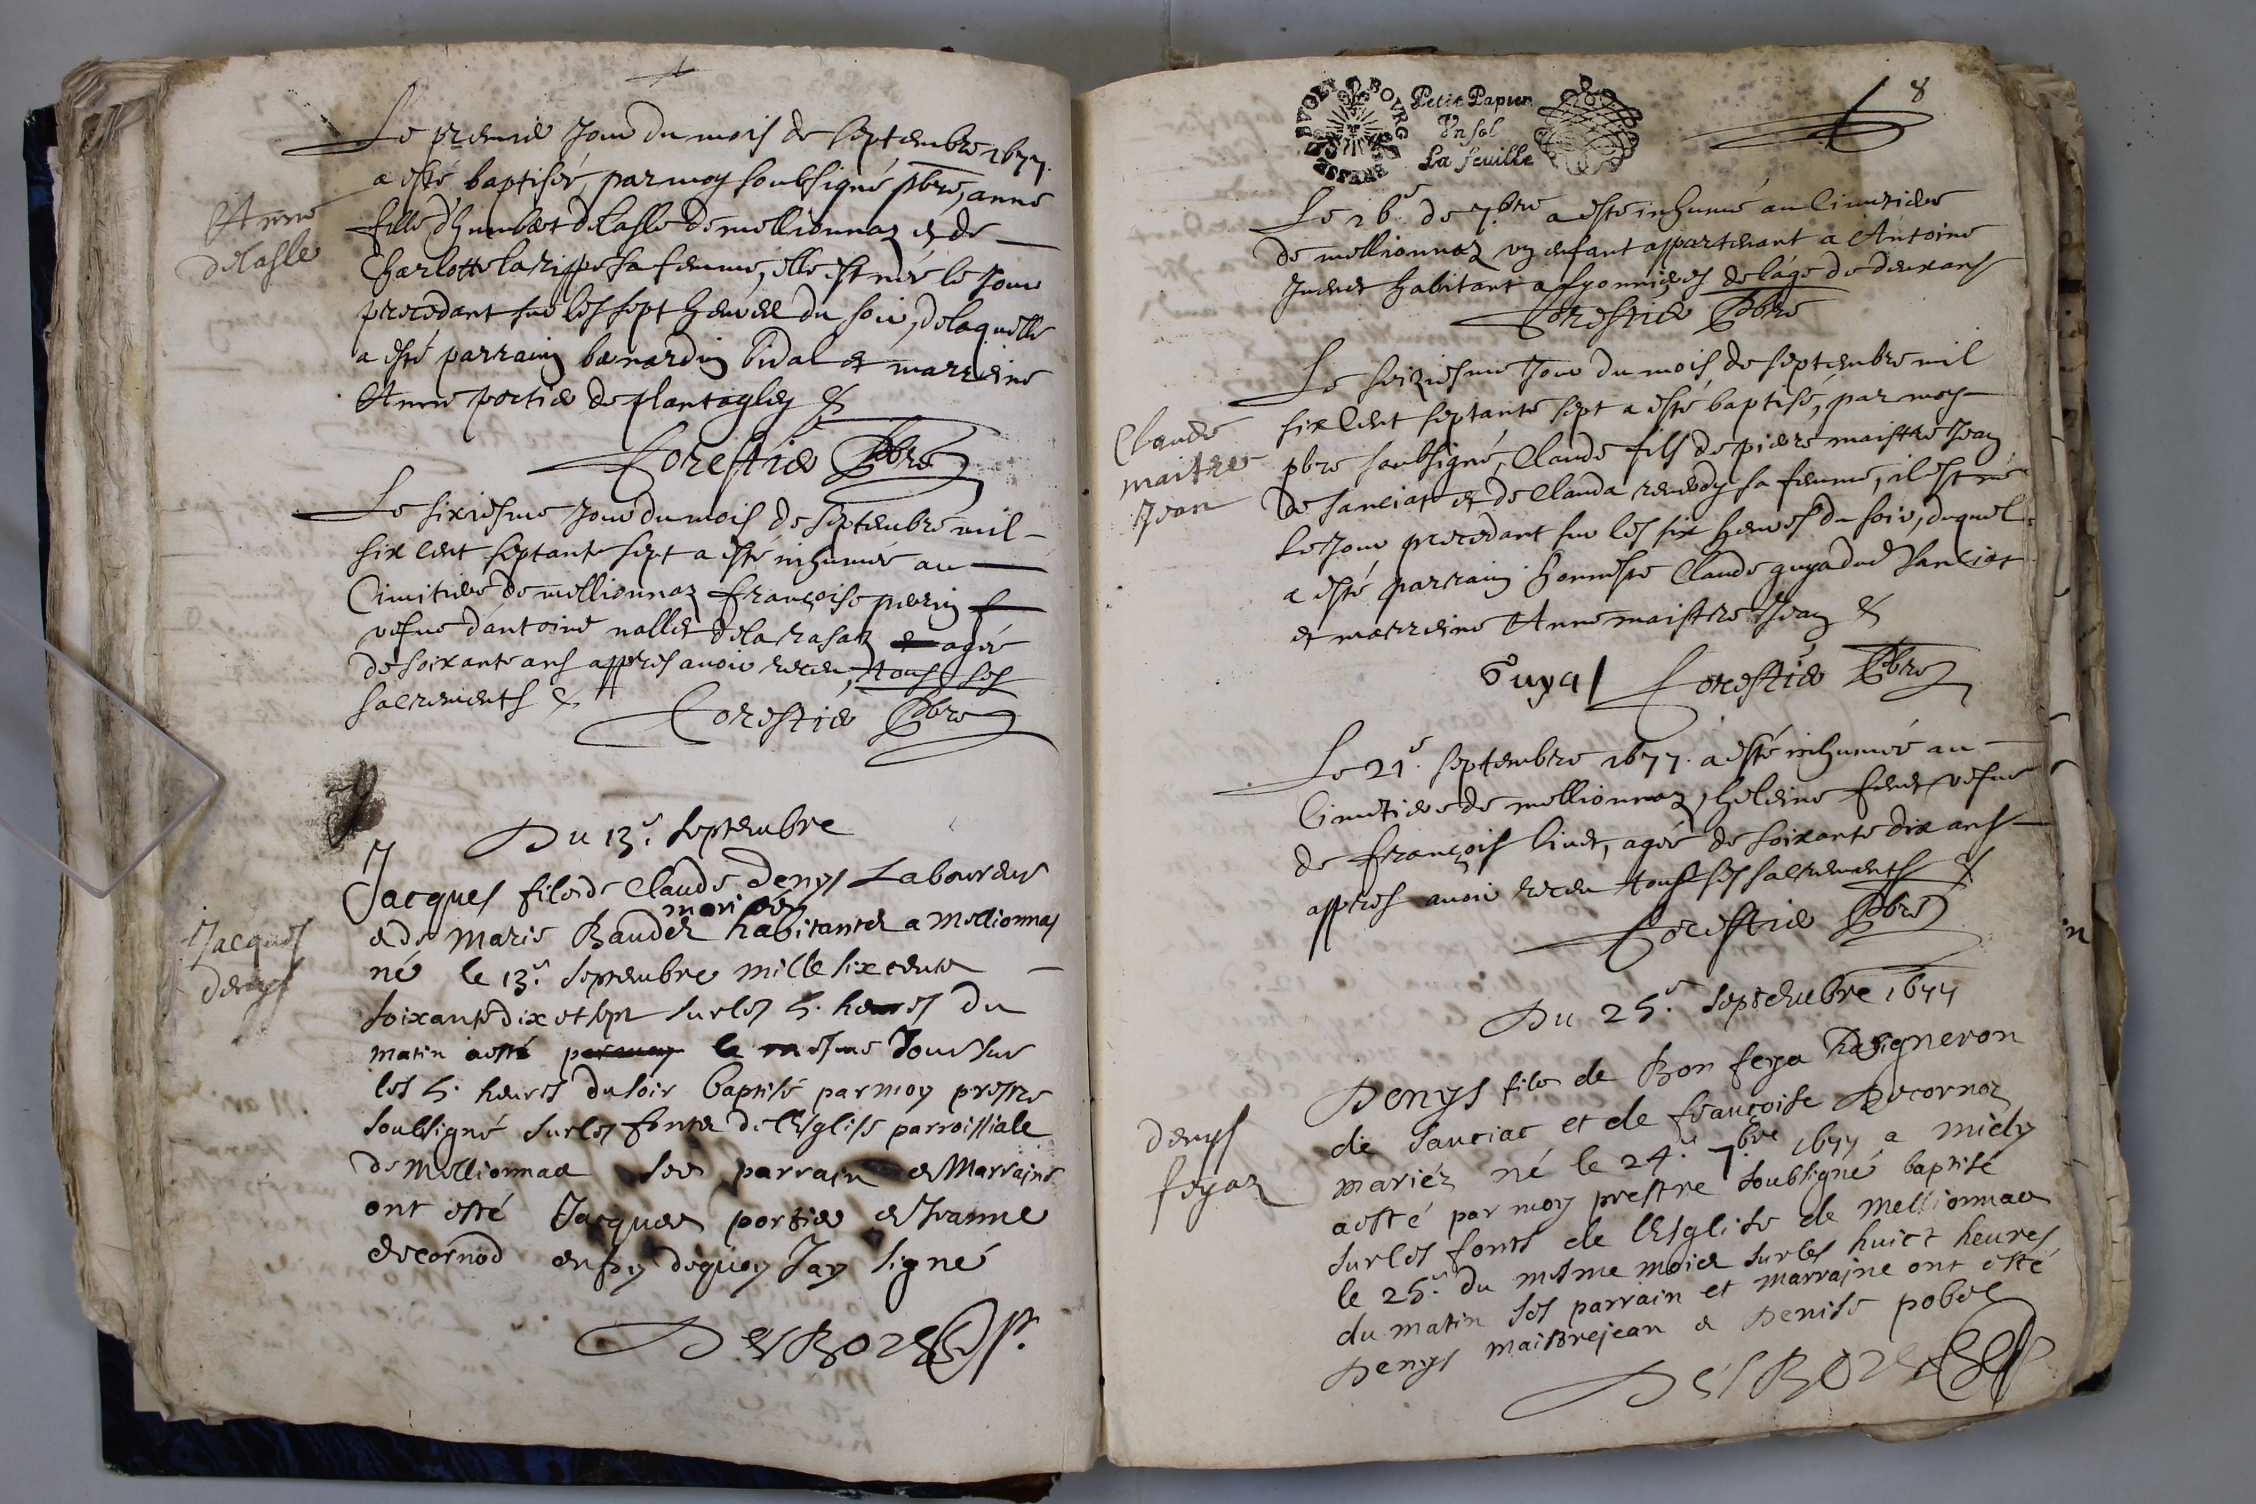 Le premier Jour du mois de septembre 1677.
a esté baptisée, par moy soubsigné pbre, anne
fille d'humbert delasle de mellionnaz et de
Charlotte larippe sa femme, elle est née le Jour
precedant sur les sept heures du soir, de laquelle
a esté parrain benardin Vidal et marreine
Anne portier de plantaglay &
Forestier pbre
Anne
delasle
Le sixiesme Jour du mois de septembre mil
six cent septante sept a esté inhumée au
Cimitiere de mellionnaz françoise perrin
vefue d'antoine nallet de la rasaz agée
de soixante ans appres auoir receu tous ses
sacrements &
Forestier pbre
Du 13.e septembre
Jacques fils de Claude Denys Laboureur
mariéz
et de Marie Baudez habitantz a Mellionnas
né le 13.e septembre mille six centz
soixante dix et sept sur les 5. heures du
matin a esté par moy le mesme Jour sur
les 5. heures du soir baptisé par moy prestre
soubsigné sur les fontz de l'Esglise parroissiale
de Mellionnaz ses parrain et Marraine
ont esté Jacques portier et Jeanne
decornod en foy dequoy Jay signé
Jacques
denys
8
BOURG
Petit Papier
Un sol
La feuille
Le 16.e de 7.bre a esté inhumé au Cimitiere
de mellionnaz un enfant appartenant a Antoine
habitant a lyonnieres de l'age de deux ans
Forestier pbre
Le seiziesme Jour du mois de septembre mil
six Cent septante sept a esté baptisé, par moy
pbre soubsigné, Claude fils de pierre maistre Jean
de sanciat et de Clauda renody sa femme, il est né
le Jour precedant sur les six heures du soir, duquel
a esté parrain honneste Claude guyadod sanciat
et marreine Anne maistre Jean &
Guya Forestier pbre
Claude
maitre
Jean
Le 21.e septembre 1677. a esté inhumée au
Cimitiere de mellionnaz, heleine feret vefue
de françois liuet, agée de soixante dix ans
appres auoir receu tous ses sacrements &
Forestier pbre
Du 25.e septembre 1677
Denys fils de Bon feya vigneron
de sanciac et de françoise Decornoz
mariéz né le 24.e 7.bre 1677 a midy
a esté par moy prestre soubsigné baptisé
sur les fonts de l'Esglise de Mellionnaz
le 25.e du mesme mois sur les huict heures
du matin ses parrain et marraine ont esté
Denys maistrejean et Denise pobel
denys
feyaz